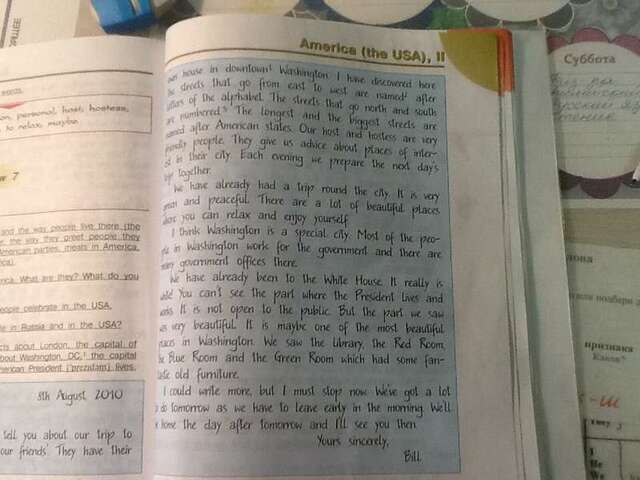 America (the USA), II
house in downtown¹ Washington. I have discovered here
the streets that go from east to west are named² after
of the alphabet. The streets that go north and south
are numbered.³ The longest and the biggest streets are
named after American states. Our host and hostess are very
friendly people. They give us advice about places of inter-
in their city. Each evening we prepare the next day's
trip together.
We have already had a trip round the city. It is very
and peaceful. There are a lot of beautiful places
where you can relax and enjoy yourself.
I think Washington is a special city. Most of the peo-
in Washington work for the government and there are
many government offices there.
We have already been to the White House. It really is
You can't see the part where the President lives and
works. It is not open to the public. But the part we saw
was very beautiful. It is maybe one of the most beautiful
places in Washington. We saw the library, the Red Room,
the Blue Room and the Green Room which had some fan-
old furniture.
I could write more, but I must stop now. We've got a lot
to do tomorrow as we have to leave early in the morning. We'll
home the day after tomorrow and I'll see you then.
Yours sincerely,
Bill.
words.
personal, host, hostess,
to relax, maybe.
7
and the way people live there (the
the way they greet people they
American parties, meals in America,
What are they? What do you
people celebrate in the USA.
in Russia and in the USA?
about London, the capital of
about Washington, DC,¹ the capital
American President ['prezɪdənt] lives.
8th August, 2010
tell you about our trip to
our friends'. They have their
Суббота
признака